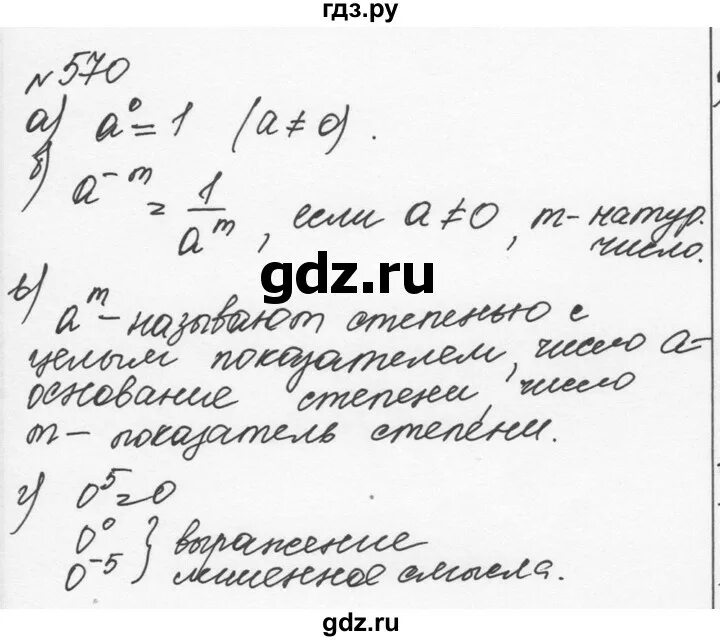 гдз.ру
№570
а) a⁰ = 1 (a ≠ 0).
б) a⁻ᵐ = 1/aᵐ, если a ≠ 0, m - натур. число.
gdz.ru
в) aᵐ - называют степенью с
целым показателем, число a -
основание степени, число
m - показатель степени.
г) 0⁵ = 0
0⁰
0⁻⁵ } выражение
лишенное смысла.
gdz.ru